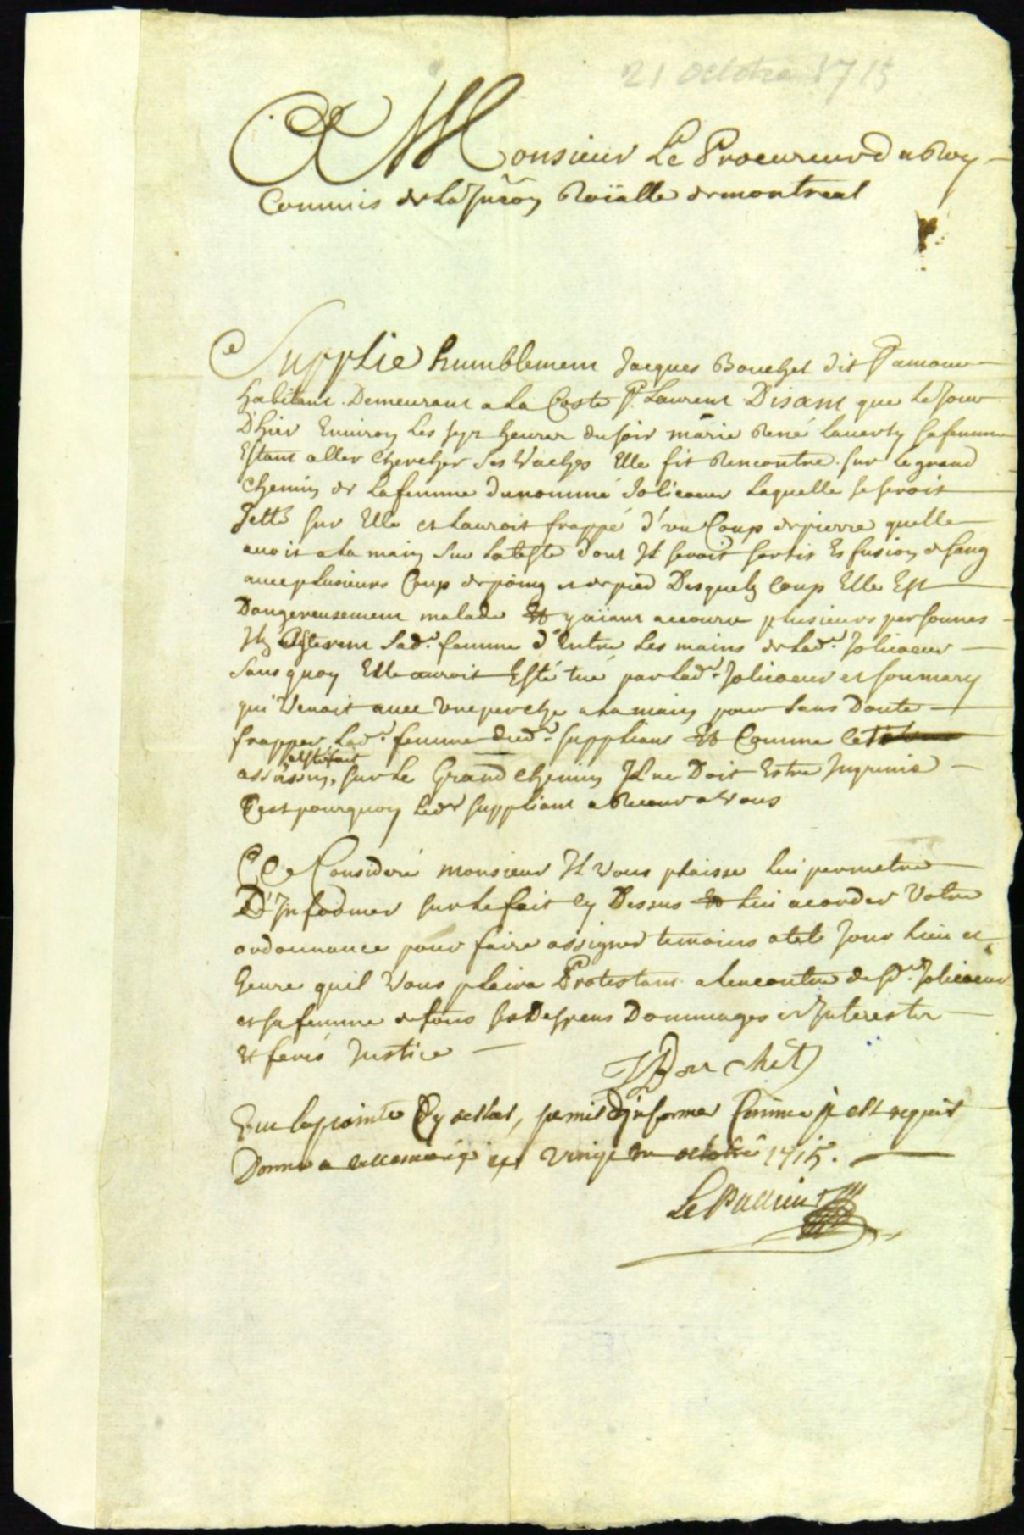 21 octobre 1715
A Monsieur Le Procureur du Roy
Commis de la Jur̃on Roÿalle de montreal
Supplie humblement Jacques Bouchet dit
habitant Demeurant a la Coste St. Laurent Disant que le Jour
D'hier Environ les heures du soir marie René sa femme
Estant aller chercher ses Vaches Elle fit Rencontre sur le grand
chemin de la femme du nommé Jolicoeur laquelle se seroit
Jetté sur Elle et lauroit frappé d'un Coup de pierre quelle
avoit a la main sur la teste dont Il seroit sortis Effusion de sang
avec plusieurs Coup de poing et de pied Desquels Coup Elle Est
Dangereusement malade Et y aiant accouru plusieurs personnes
Ils osterent lade. femme d'Entre les mains de lade. Jolicoeur
sans quoy Elle auroit Esté tué par lade. Jolicoeur et son mary
qui Venoit avec une perche a la main pour sans Doute
frapper lade. femme dud. suppliant Et Comme cet
assasin, sur le Grand chemin Il ne Doit Estre Impunie
C'est pourquoy led. suppliant a Recour a Vous
Ce Consideré monsieur Il vous plaisse lui permetre
D'Informer sur le fait cy Dessus Et lui acorder Votre
ordonnance pour faire assigner temoins a tel Jour lieu et
heure quil Vous plaira Protestant a lencontre de Jolicoeur
et sa femme de tous ses Despens Dommages et Interests
Et ferés Justice
J Bouchet
Veu la plainte Cy , permis d'informer Comme il est requis
Donné a ce Vingt un octobre 1715.
Le Pallieur